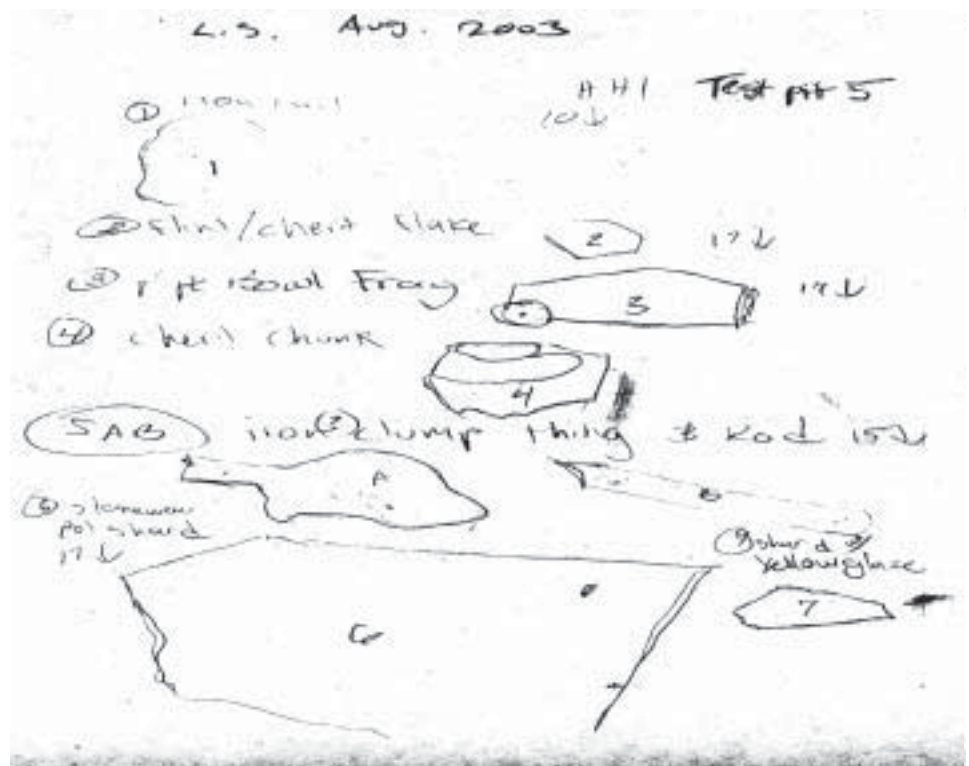 L.S. Aug. 2003
AHI Test pit 5
① iron nail
10↓
1
② Flint/chert flake 2 17↓
③ Bowl Frag 3 17↓
④ chert chunk
4
5AB iron(?) clump thing & Rod 15↓
A B
⑥ stoneware
pot shard
17↓
⑦ shard
Yellow glaze
7
6